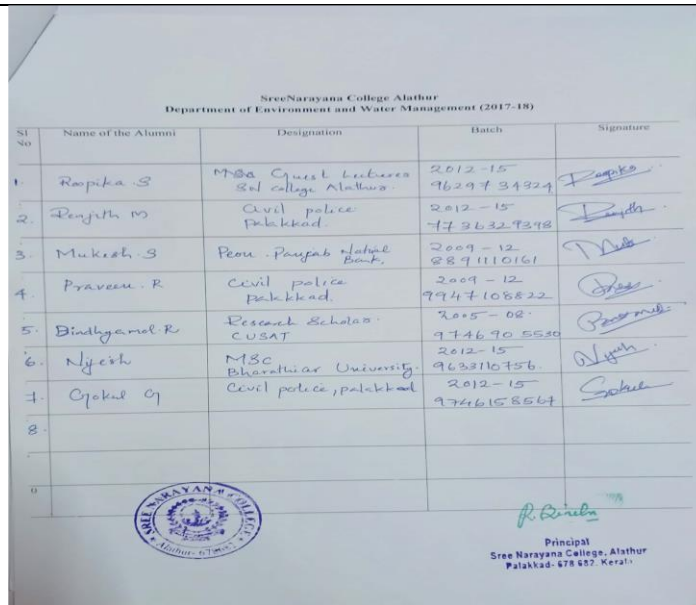 SreeNarayana College Alathur
Department of Environment and Water Management (2017-18)
Sl No Name of the Alumni Designation Batch Signature
1. Roopika S Guest Lecturer 2012-15
Snl college Alathur. 9629734324 Roopika
2. Renjith M Civil police 2012-15 Renjith
palakkad. 7736329398
3. Mukesh.S Peon. Panjab National 2009-12
Bank, 8891110161
4. Praveen.R Civil police 2009-12
palakkad. 9947108822
5. Bindhyamol.R Research Scholar. 2005-08.
CUSAT 9746905530
6. Nijesh MSC 2012-15
Bharathiar University. 9633110756.
7. Gokul G Civil police, palakkad 2012-15 Gokul
9746158567
8.
0
SREE NARAYANA COLLEGE
Alathur-
Principal
Sree Narayana College, Alathur
Palakkad- 678 682. Kerala